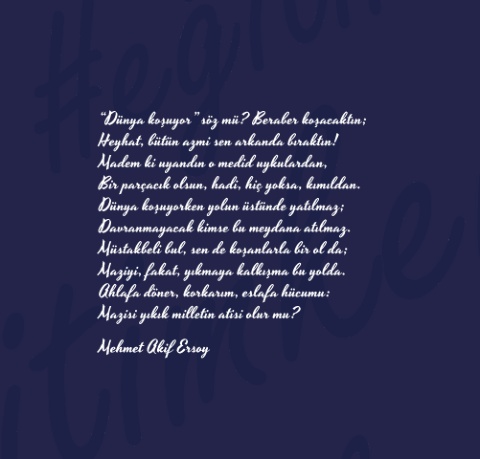 “Dünya koşuyor” söz mü? Beraber koşacaktın;
Heyhat, bütün azmi sen arkanda bıraktın!
Madem ki uyandın o medid uykulardan,
Bir parçacık olsun, hadi, hiç yoksa, kımıldan.
Dünya koşuyorken yolun üstünde yatılmaz;
Davranmayacak kimse bu meydana atılmaz.
Müstakbeli bul, sen de koşanlarla bir ol da;
Maziyi, fakat, yıkmaya kalkışma bu yolda.
Ahlafa döner, korkarım, eslafa hücumu:
Mazisi yıkık milletin atisi olur mu?
Mehmet Akif Ersoy